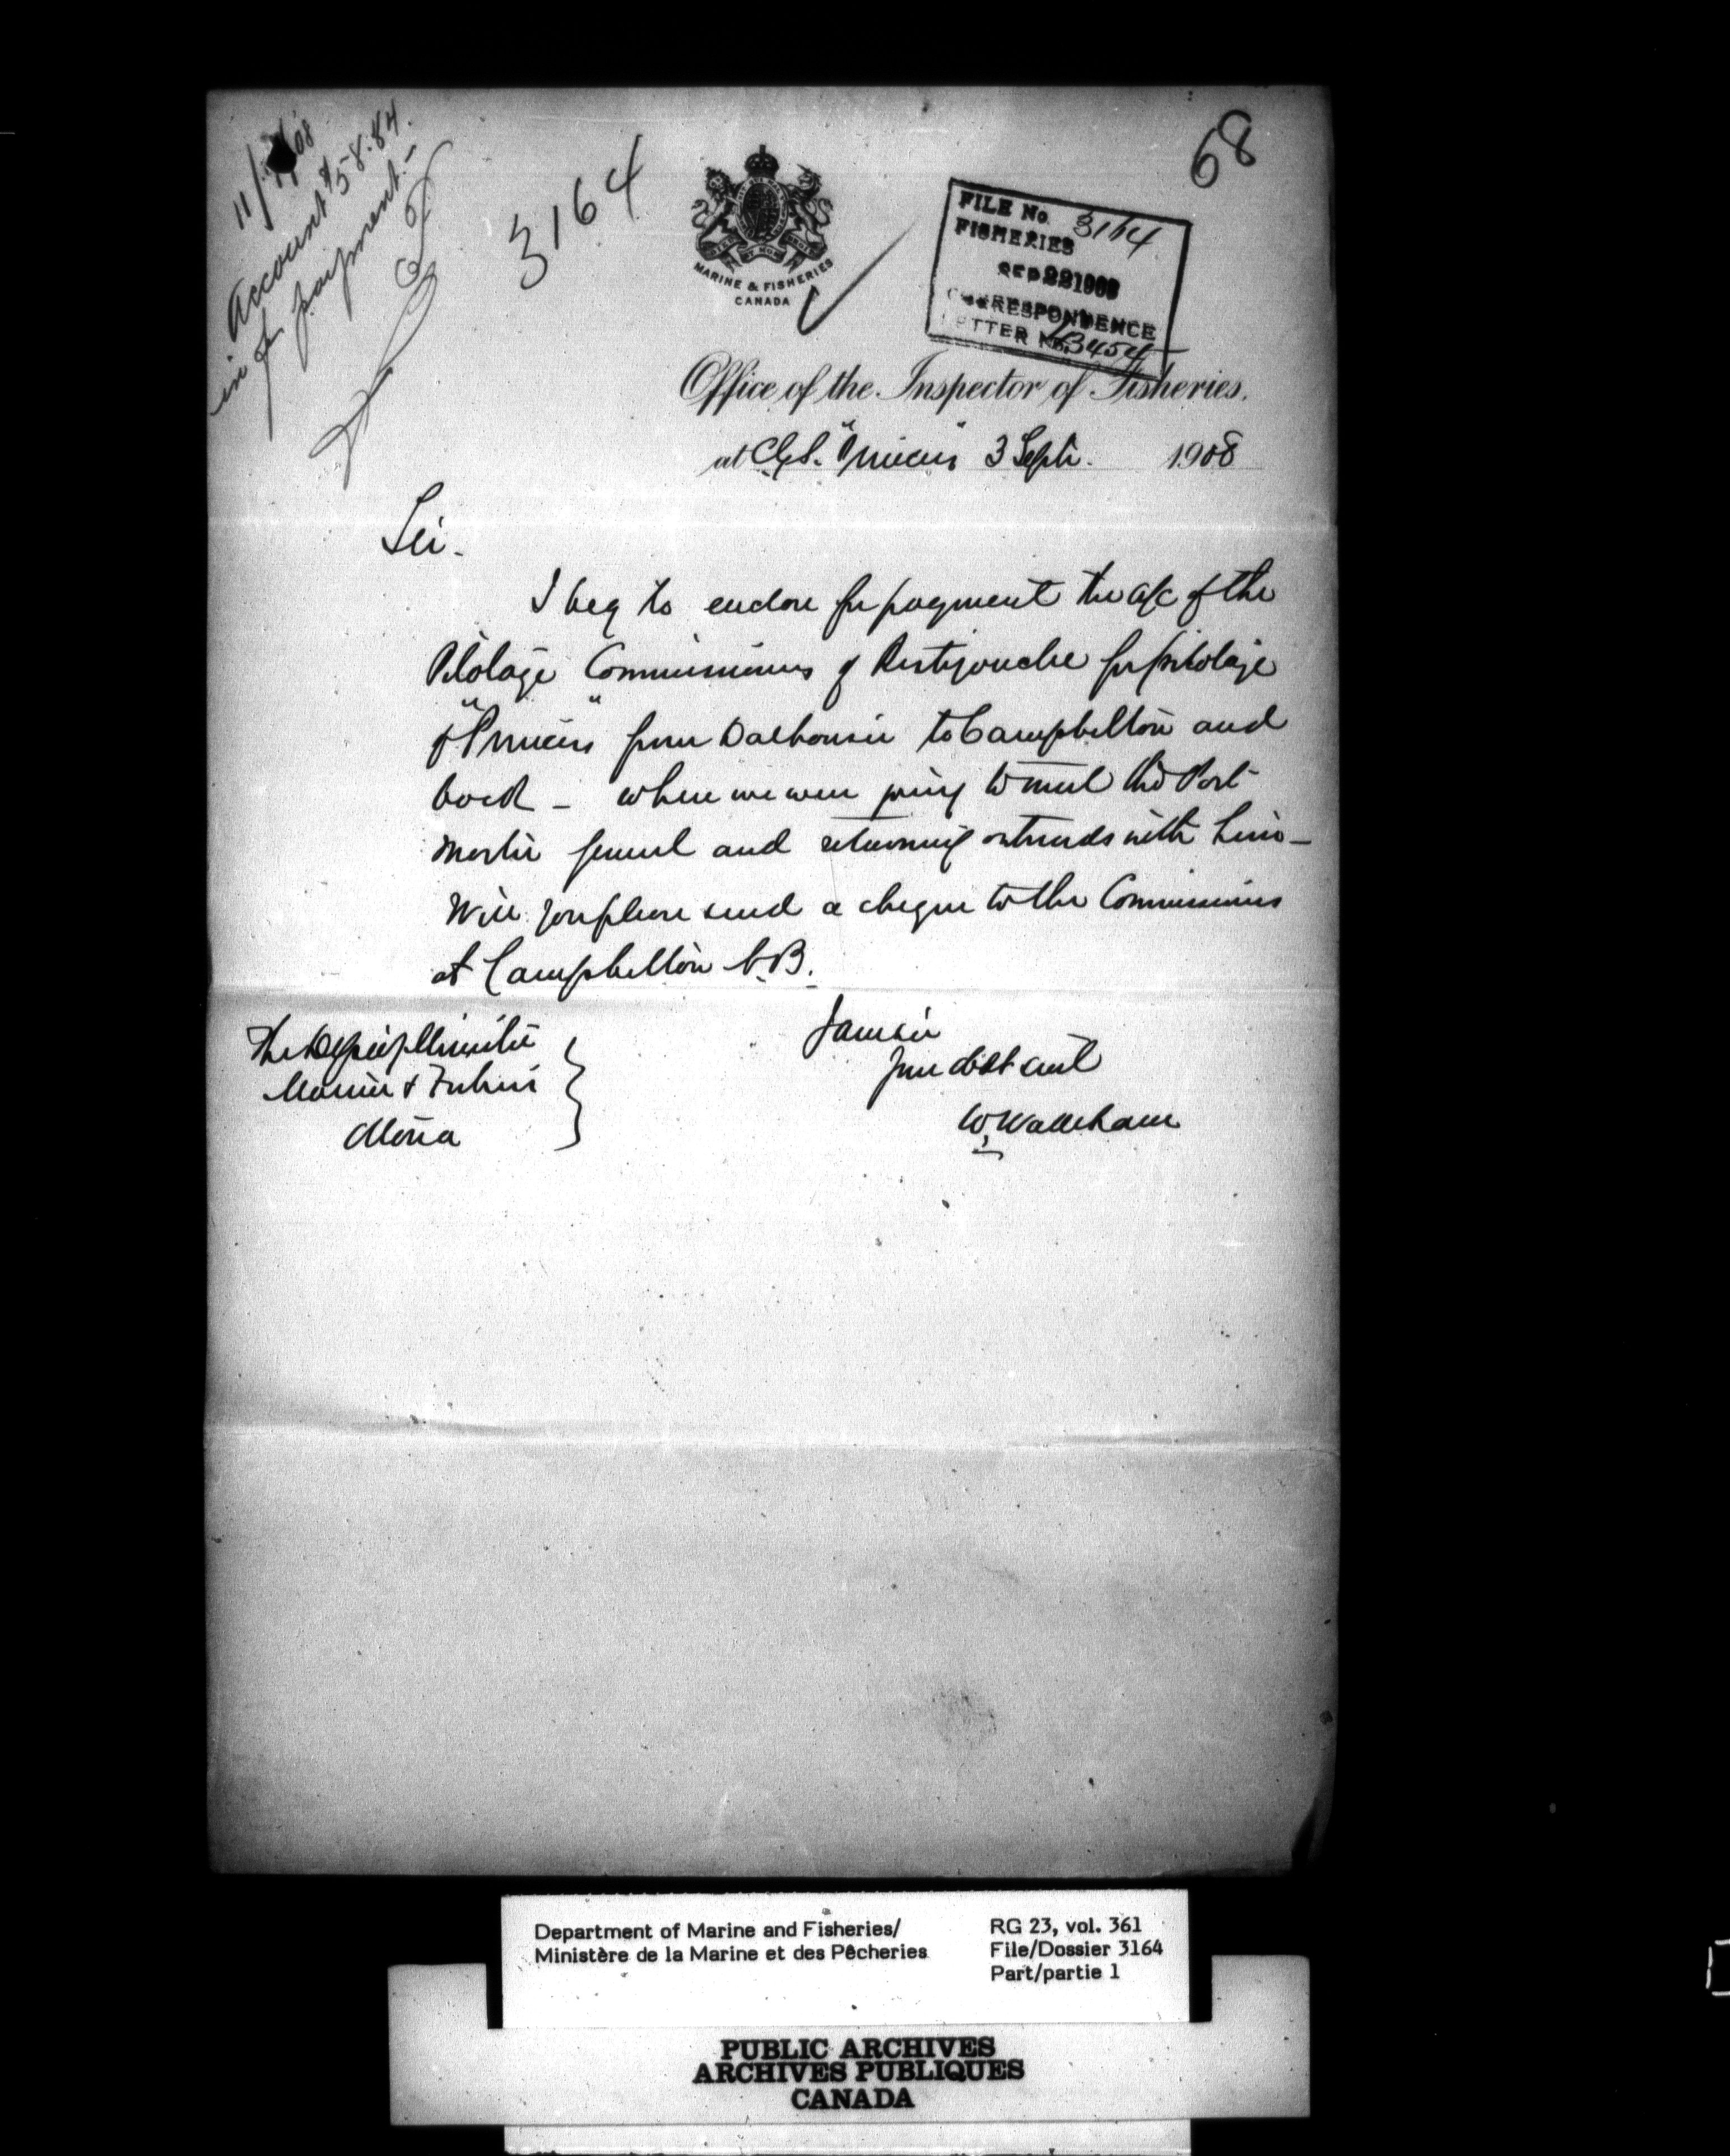 68
11/9/08
Account $58.84
in for payment.-
3164
MARINE & FISHERIES
CANADA
FILE No. 3164
FISHERIES
SEP 22 1908
CORRESPONDENCE
LETTER No. 3454
Office of the Inspector of Fisheries.
at C.G.S. "Princess" 3 Sept. 1908
Sir.
I beg to enclose for payment the a/c of the
Pilotage Commissioners of Restigouche for pilotage
of "Princess" from Dalhousie to Campbellton and
back - when we were going to meet the Post
Master General and returning outwards with him -
Will you please send a cheque to the Commissioners
at Campbellton N.B.
I am sir
your obdt servt
W. Wakeham
The Deputy Minister
Marine & Fisheries
Ottawa
Department of Marine and Fisheries/
Ministère de la Marine et des Pêcheries
RG 23, vol. 361
File/Dossier 3164
Part/partie 1
PUBLIC ARCHIVES
ARCHIVES PUBLIQUES
CANADA